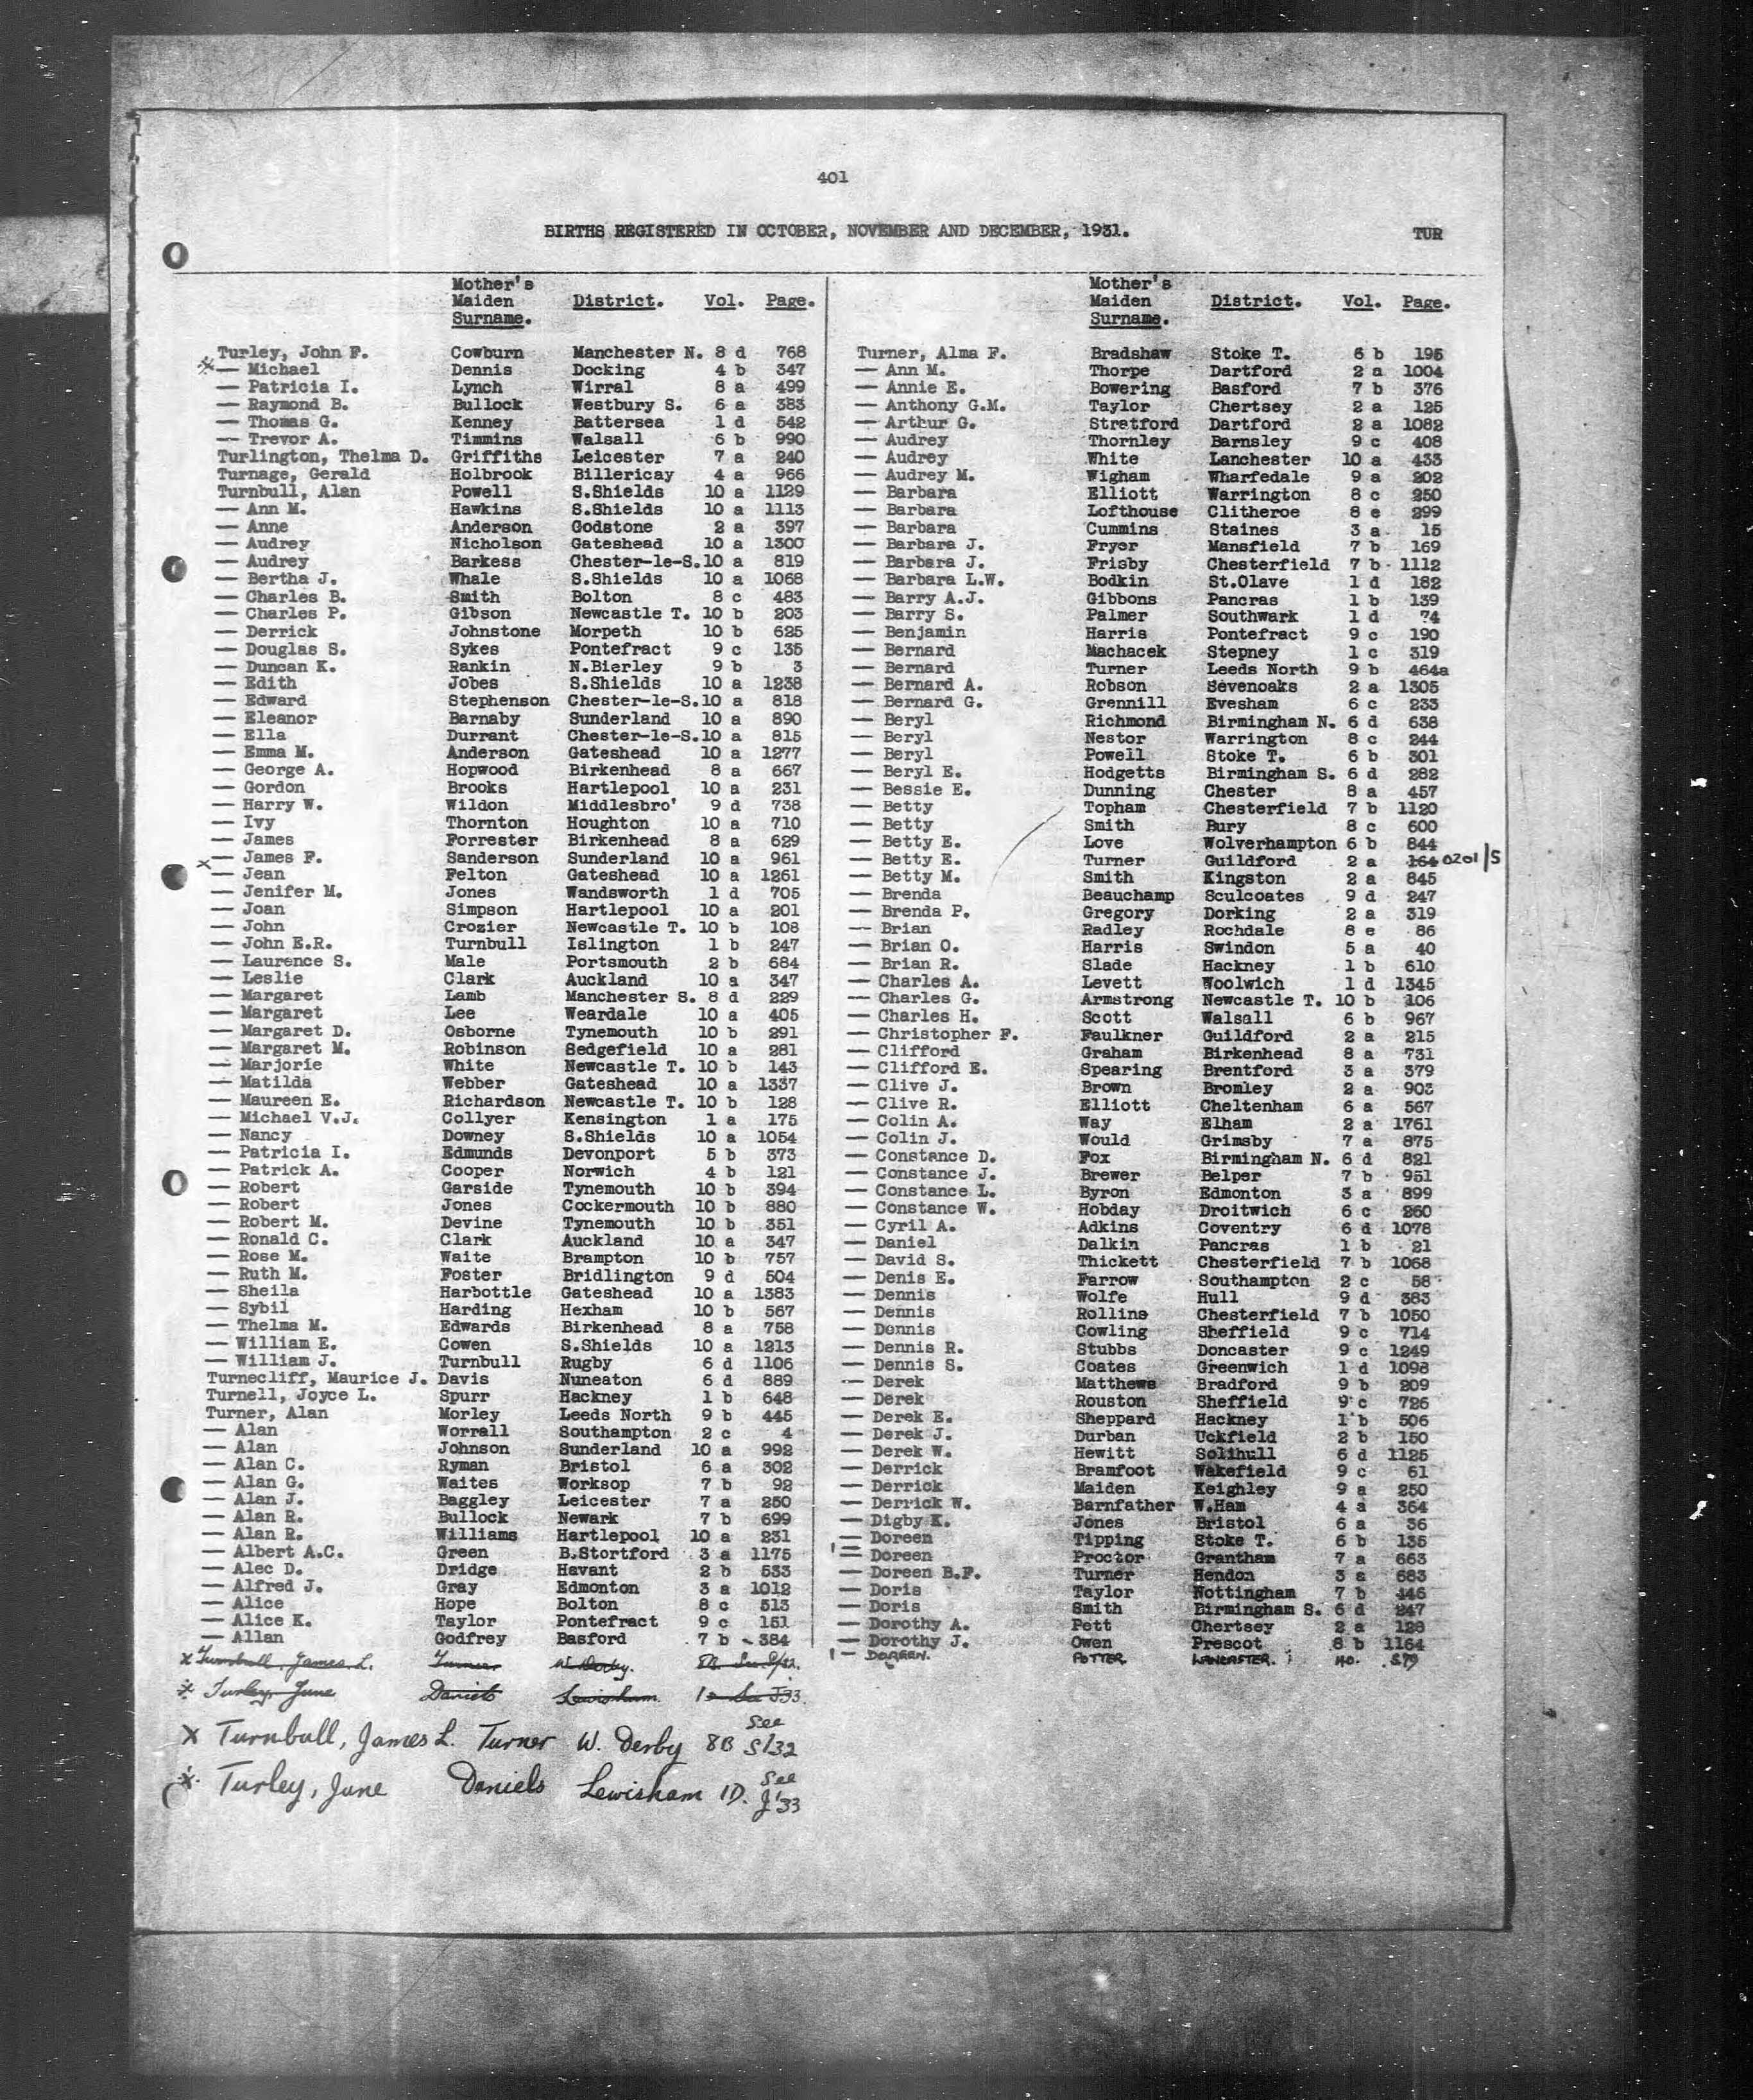 401
BIRTHS REGISTERED IN OCTOBER, NOVEMBER AND DECEMBER, 1931.
TUR
Mother's
Maiden District. Vol. Page.
Surname.
Turley, John F. Cowburn Manchester N. 8 d 768
— Michael Dennis Docking 4 b 347
— Patricia I. Lynch Wirral 8 a 499
— Raymond B. Bullock Westbury S. 6 a 383
— Thomas G. Kenney Battersea 1 d 542
— Trevor A. Timmins Walsall 6 b 990
Turlington, Thelma D. Griffiths Leicester 7 a 240
Turnage, Gerald Holbrook Billericay 4 a 966
Turnbull, Alan Powell S.Shields 10 a 1129
— Ann M. Hawkins S.Shields 10 a 1113
— Anne Anderson Godstone 2 a 397
— Audrey Nicholson Gateshead 10 a 1300
— Audrey Barkess Chester-le-S. 10 a 819
— Bertha J. Whale S.Shields 10 a 1068
— Charles B. Smith Bolton 8 c 483
— Charles P. Gibson Newcastle T. 10 b 203
— Derrick Johnstone Morpeth 10 b 625
— Douglas S. Sykes Pontefract 9 c 135
— Duncan K. Rankin N.Bierley 9 b 3
— Edith Jobes S.Shields 10 a 1238
— Edward Stephenson Chester-le-S. 10 a 818
— Eleanor Barnaby Sunderland 10 a 890
— Ella Durrant Chester-le-S. 10 a 815
— Emma M. Anderson Gateshead 10 a 1277
— George A. Hopwood Birkenhead 8 a 667
— Gordon Brooks Hartlepool 10 a 231
— Harry W. Wildon Middlesbro' 9 d 738
— Ivy Thornton Houghton 10 a 710
— James Forrester Birkenhead 8 a 629
— James F. Sanderson Sunderland 10 a 961
x — Jean Felton Gateshead 10 a 1261
— Jenifer M. Jones Wandsworth 1 d 705
— Joan Simpson Hartlepool 10 a 201
— John Crozier Newcastle T. 10 b 108
— John E.R. Turnbull Islington 1 b 247
— Laurence S. Male Portsmouth 2 b 684
— Leslie Clark Auckland 10 a 347
— Margaret Lamb Manchester S. 8 d 229
— Margaret Lee Weardale 10 a 405
— Margaret D. Osborne Tynemouth 10 b 291
— Margaret M. Robinson Sedgefield 10 a 281
— Marjorie White Newcastle T. 10 b 143
— Matilda Webber Gateshead 10 a 1337
— Maureen E. Richardson Newcastle T. 10 b 128
— Michael V.J. Collyer Kensington 1 a 175
— Nancy Downey S.Shields 10 a 1054
— Patricia I. Edmunds Devonport 5 b 373
— Patrick A. Cooper Norwich 4 b 121
— Robert Garside Tynemouth 10 b 394
— Robert Jones Cockermouth 10 b 880
— Robert M. Devine Tynemouth 10 b 351
— Ronald C. Clark Auckland 10 a 347
— Rose M. Waite Brampton 10 b 757
— Ruth M. Foster Bridlington 9 d 504
— Sheila Harbottle Gateshead 10 a 1383
— Sybil Harding Hexham 10 b 567
— Thelma M. Edwards Birkenhead 8 a 758
— William E. Cowen S.Shields 10 a 1213
— William J. Turnbull Rugby 6 d 1106
Turnecliff, Maurice J. Davis Nuneaton 6 d 889
Turnell, Joyce L. Spurr Hackney 1 b 648
Turner, Alan Morley Leeds North 9 b 445
— Alan Worrall Southampton 2 c 4
— Alan Johnson Sunderland 10 a 992
— Alan C. Ryman Bristol 6 a 302
— Alan G. Waites Worksop 7 b 92
— Alan J. Baggley Leicester 7 a 250
— Alan R. Bullock Newark 7 b 699
— Alan R. Williams Hartlepool 10 a 231
— Albert A.C. Green B.Stortford 3 a 1175
— Alec D. Dridge Havant 2 b 533
— Alfred J. Gray Edmonton 3 a 1012
— Alice Hope Bolton 8 c 513
— Alice K. Taylor Pontefract 9 c 151
— Allan Godfrey Basford 7 b 384
x Turnbull, James L. Turner W. Derby. 8B See S/32.
Turley, June Daniels Lewisham 1D See J33.
x Turnbull, James L. Turner W. Derby 8B See S/32
Turley, June Daniels Lewisham 1D. See J'33
Mother's
Maiden District. Vol. Page.
Surname.
Turner, Alma F. Bradshaw Stoke T. 6 b 195
— Ann M. Thorpe Dartford 2 a 1004
— Annie E. Bowering Basford 7 b 376
— Anthony G.M. Taylor Chertsey 2 a 125
— Arthur G. Stretford Dartford 2 a 1082
— Audrey Thornley Barnsley 9 c 408
— Audrey White Lanchester 10 a 433
— Audrey M. Wigham Wharfedale 9 a 202
— Barbara Elliott Warrington 8 c 250
— Barbara Lofthouse Clitheroe 8 e 299
— Barbara Cummins Staines 3 a 15
— Barbara J. Fryer Mansfield 7 b 169
— Barbara J. Frisby Chesterfield 7 b 1112
— Barbara L.W. Bodkin St.Olave 1 d 182
— Barry A.J. Gibbons Pancras 1 b 139
— Barry S. Palmer Southwark 1 d 74
— Benjamin Harris Pontefract 9 c 190
— Bernard Machacek Stepney 1 c 319
— Bernard Turner Leeds North 9 b 464a
— Bernard A. Robson Sevenoaks 2 a 1305
— Bernard G. Grennill Evesham 6 c 233
— Beryl Richmond Birmingham N. 6 d 638
— Beryl Nestor Warrington 8 c 244
— Beryl Powell Stoke T. 6 b 301
— Beryl E. Hodgetts Birmingham S. 6 d 282
— Bessie E. Dunning Chester 8 a 457
— Betty Topham Chesterfield 7 b 1120
— Betty Smith Bury 8 c 600
— Betty E. Love Wolverhampton 6 b 844
— Betty E. Turner Guildford 2 a 164 0201/S
— Betty M. Smith Kingston 2 a 845
— Brenda Beauchamp Sculcoates 9 d 247
— Brenda P. Gregory Dorking 2 a 319
— Brian Radley Rochdale 8 e 86
— Brian O. Harris Swindon 5 a 40
— Brian R. Slade Hackney 1 b 610
— Charles A. Levett Woolwich 1 d 1345
— Charles G. Armstrong Newcastle T. 10 b 106
— Charles H. Scott Walsall 6 b 967
— Christopher F. Faulkner Guildford 2 a 215
— Clifford Graham Birkenhead 8 a 731
— Clifford E. Spearing Brentford 3 a 379
— Clive J. Brown Bromley 2 a 903
— Clive R. Elliott Cheltenham 6 a 567
— Colin A. Way Elham 2 a 1761
— Colin J. Would Grimsby 7 a 875
— Constance D. Fox Birmingham N. 6 d 821
— Constance J. Brewer Belper 7 b 951
— Constance L. Byron Edmonton 3 a 899
— Constance W. Hobday Droitwich 6 c 260
— Cyril A. Adkins Coventry 6 d 1078
— Daniel Dalkin Pancras 1 b 21
— David S. Thickett Chesterfield 7 b 1068
— Denis E. Farrow Southampton 2 c 58
— Dennis Wolfe Hull 9 d 383
— Dennis Rollins Chesterfield 7 b 1050
— Dennis Cowling Sheffield 9 c 714
— Dennis R. Stubbs Doncaster 9 c 1249
— Dennis S. Coates Greenwich 1 d 1098
— Derek Matthews Bradford 9 b 209
— Derek Rouston Sheffield 9 c 726
— Derek E. Sheppard Hackney 1 b 506
— Derek J. Durban Uckfield 2 b 150
— Derek W. Hewitt Solihull 6 d 1125
— Derrick Bramfoot Wakefield 9 c 61
— Derrick Maiden Keighley 9 a 250
— Derrick W. Barnfather W.Ham 4 a 364
— Digby K. Jones Bristol 6 a 36
— Doreen Tipping Stoke T. 6 b 135
— Doreen Proctor Grantham 7 a 663
— Doreen B.F. Turner Hendon 3 a 683
— Doris Taylor Nottingham 7 b 446
— Doris Smith Birmingham S. 6 d 247
— Dorothy A. Pett Chertsey 2 a 128
— Dorothy J. Owen Prescot 8 b 1164
— DOREEN. POTTER LANCASTER.